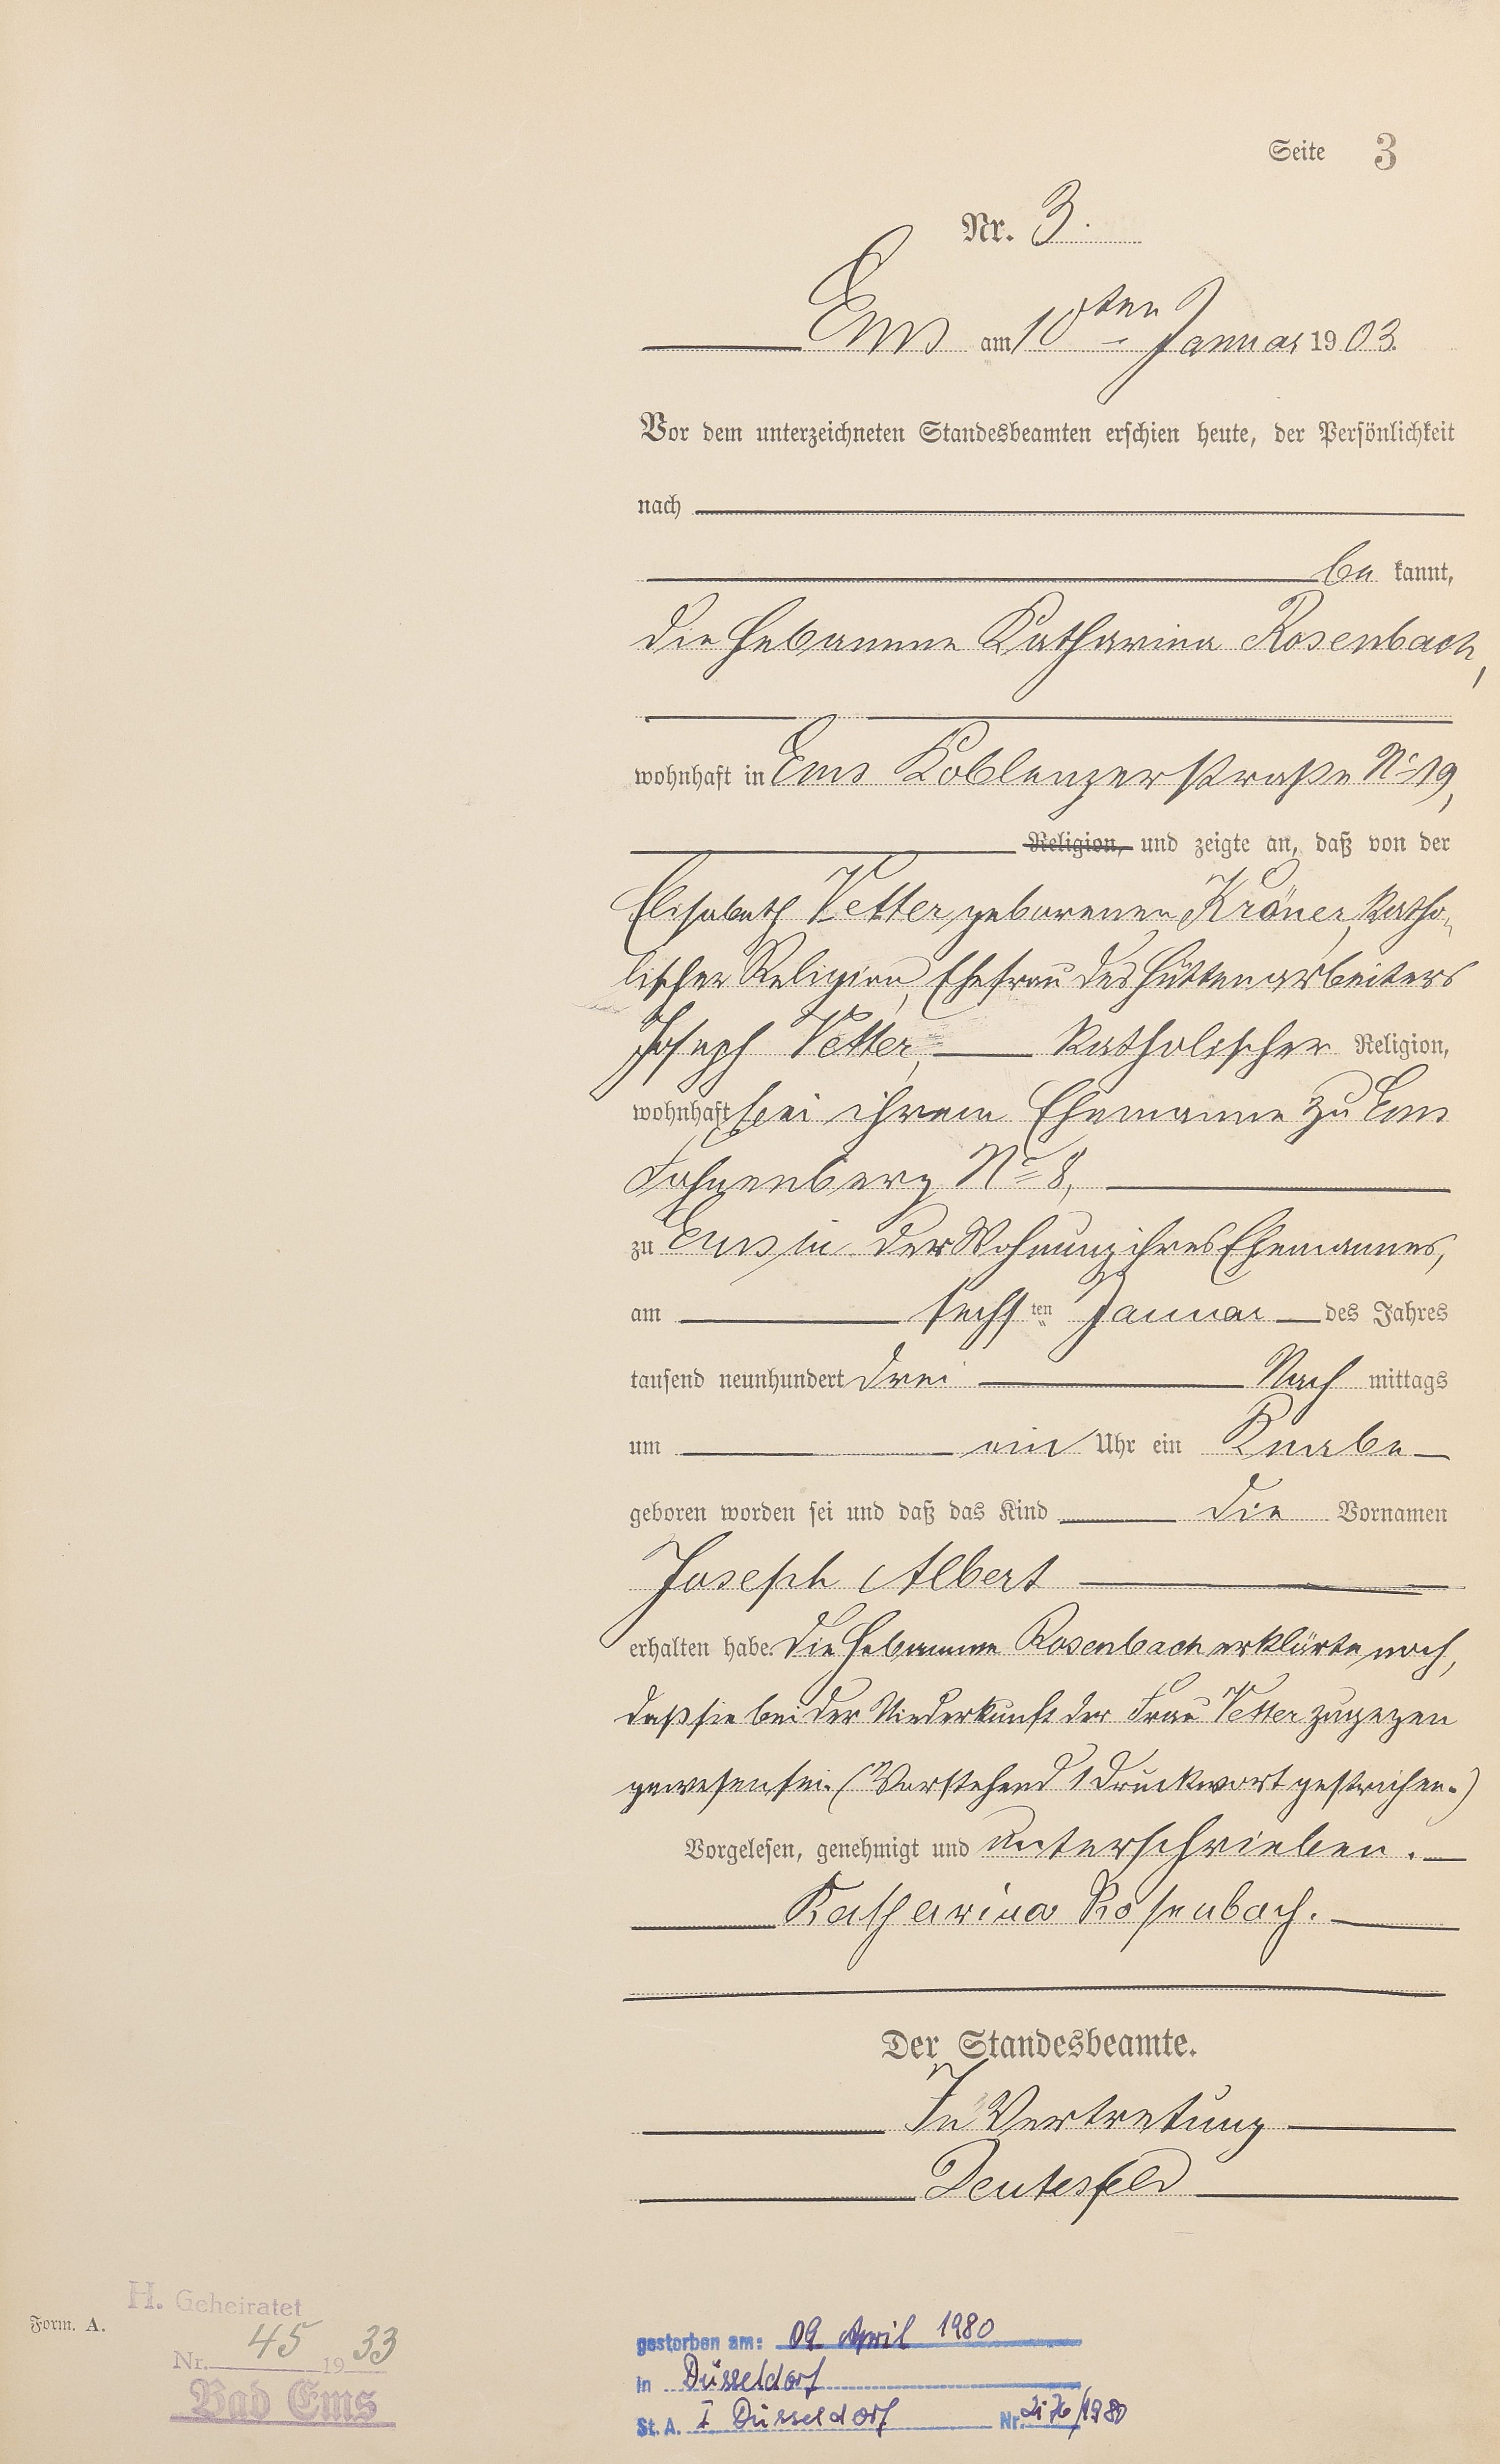 Seite 3
Nr. 3.
Ems am 10ten Januar 1903.
Vor dem unterzeichneten Standesbeamten erschien heute, der Persönlichkeit
nach
be kannt,
die Hebamme Katharina Rosenbach,
wohnhaft in Ems Koblenzerstraße No 19,
Religion, und zeigte an, daß von der
Elisabeth Vetter geborenen Kröner, katho-
lischer Religion, Ehefrau des Hüttenarbeiters
Joseph Vetter, katholischer Religion,
wohnhaft bei ihrem Ehemanne zu Ems
No 8,
zu Ems in der Wohnung ihres Ehemannes,
am sechsten Januar des Jahres
tausend neunhundert drei Nach mittags
um ein Uhr ein Knabe
geboren worden sei und daß das Kind die Vornamen
Joseph Albert
erhalten habe. Die Hebamme Rosenbach erklärte noch,
daß sie bei der Niederkunft der Frau Vetter zugegen
gewesen sei. (Vorstehend 1 Druckwort gestrichen.)
Vorgelesen, genehmigt und unterschrieben.
Katharina Rosenbach.
Der Standesbeamte.
In Vertretung
Deutesfeld
H. Geheiratet
Form. A.
Nr. 45 1933
Bad Ems
gestorben am: 09. April 1980
in Düsseldorf
St. A. I Düsseldorf Nr. /1980